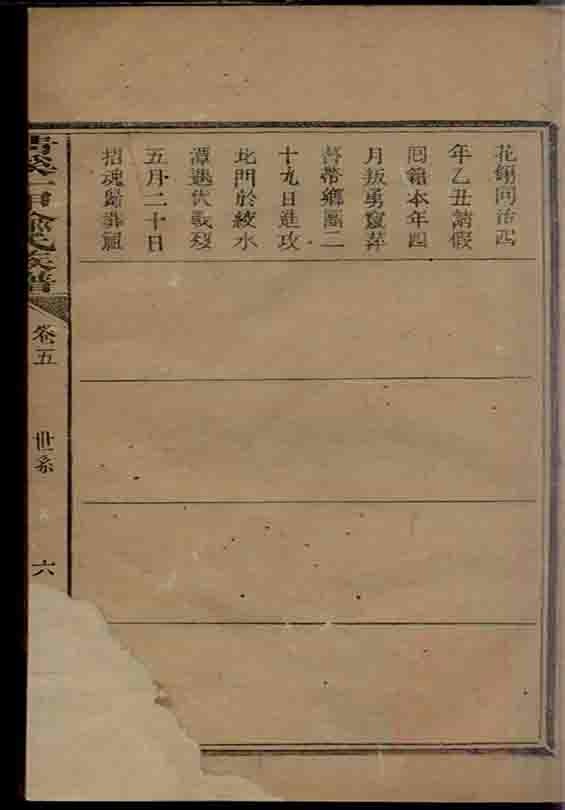 花翎同治四
年乙丑請假
回籍本年四
月叛勇竄萍
督帶鄉團二
十九日進攻
北門於綾水
潭遇伏戰歿
五月二十日
招魂歸葬祖
氏族譜
卷五
世系
六